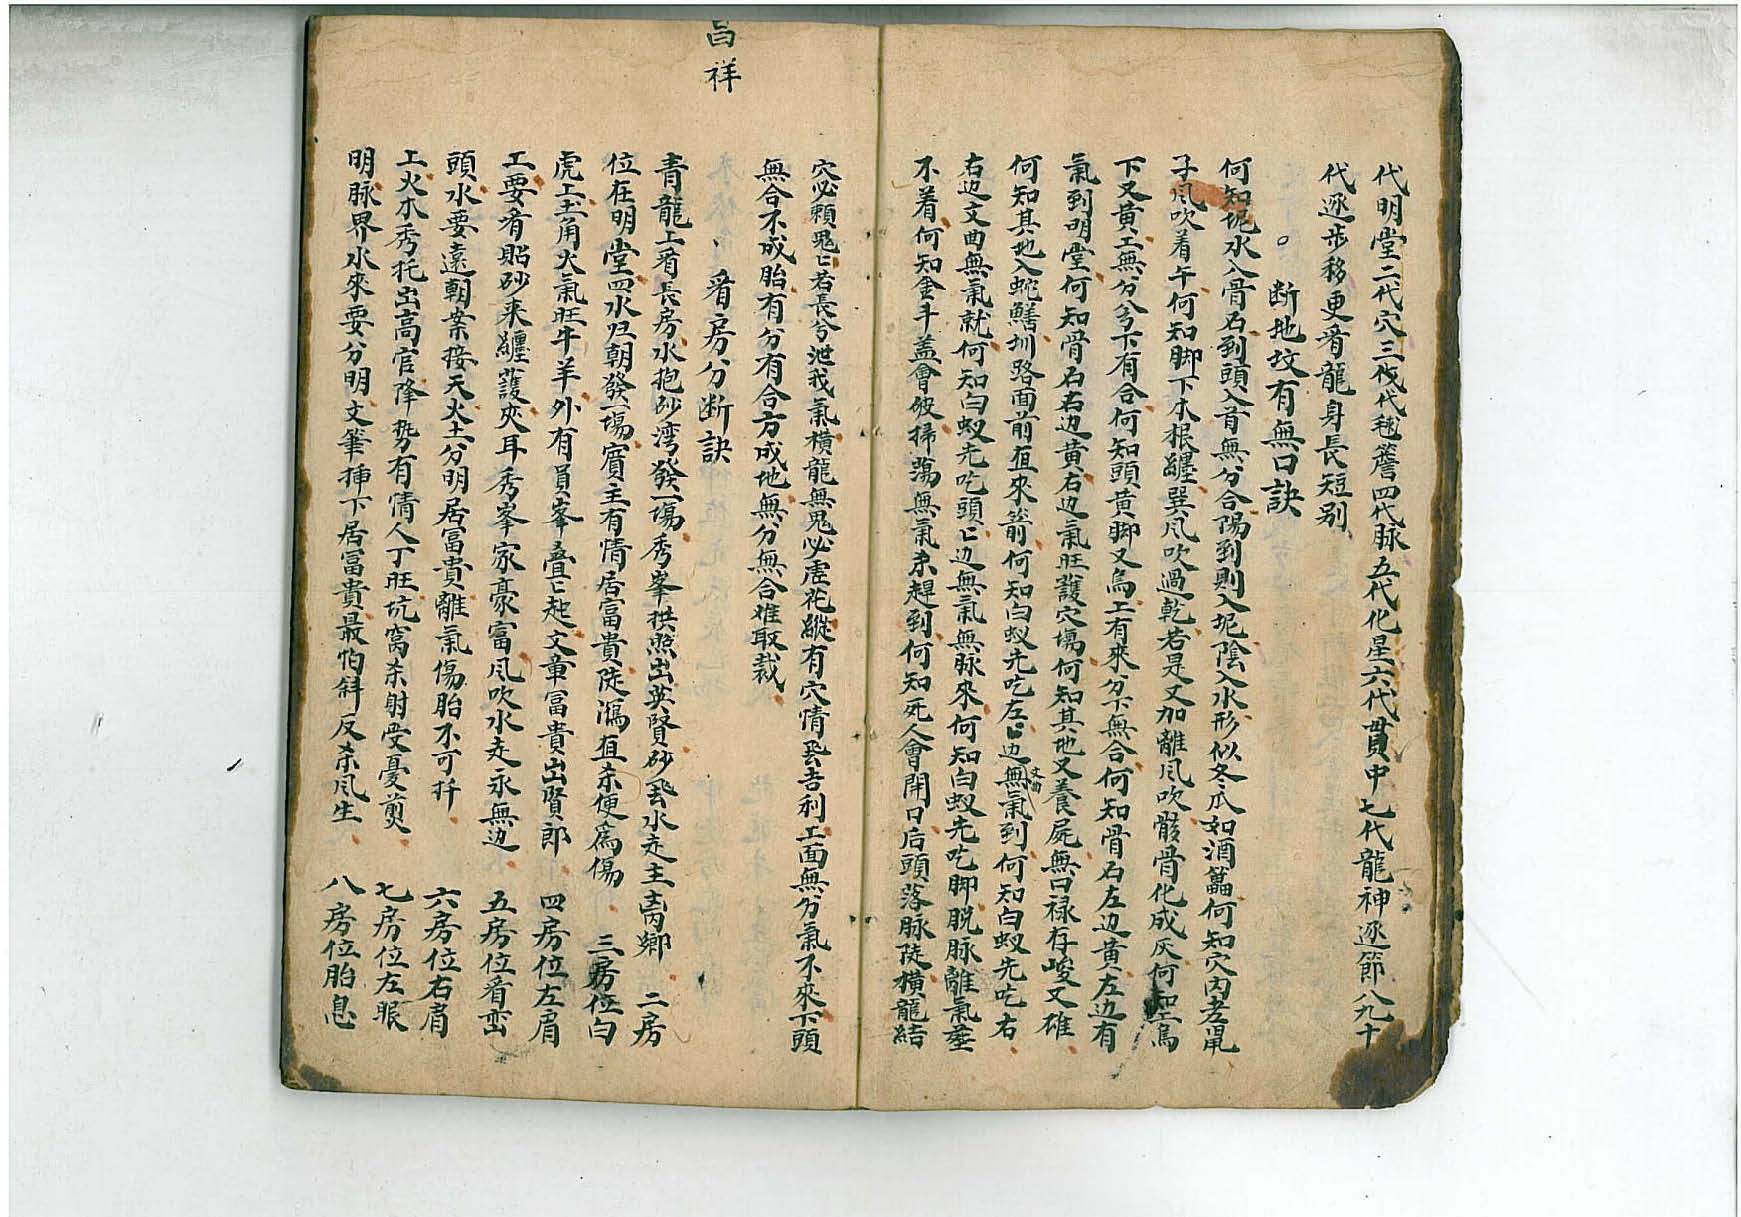 代明堂二代穴三代代毬簷四代脉五代化星六代貫中七代龍神逐節八九十
代逐步移更看龍身長短别
断地坟有無口訣
何知坭水入骨石到頭入首無分合陽到則入坭陰入水形似冬瓜如酒㽅何知穴内老鼠
子風吹着午何知脚下木根纏巽風吹過乾若是又加離風吹骸骨化成灰何知上烏
下又黄工無分兮下有合何知頭黄脚又烏工有來分下無合何知骨石左边黄左边有
氣到明堂何知骨石右边黄右边氣旺護穴塲何知其地又養屍無曰禄存峻又雄
何知其地入蛇鱔圳路面前直來箭何知白蚁先吃左匕边無氣到何知白蚁先吃右
右边文曲無氣就何知白蚁先吃頭匕边無氣無脉來何知白蚁先吃脚脱脉離氣
不着何知金斗盖會破掃蕩無氣來趕到何知死人會開口后頭落脉陡横龍結
穴必賴鬼匕若長兮泄我氣横龍無鬼必虚花縱有穴情吉利工面無分氣不來下頭
無合不成胎有分有合方成地無分無合难取裁
看房分断訣
青龍上看長房水抱砂湾發一塲秀峯拱照出英賢砂飛水走主离鄉 二房
位在明堂四水归朝發一塲賓主有情居富貴陡瀉直杀便為傷 三房位白
虎上土角火氣旺牛羊外有員峯叠匕起文章富貴出賢郎 四房位左肩
工要有貼砂来纏護夾耳秀峯家豪富風吹水走永無边 五房位看峦
頭水要遠朝案接天火土分明居富貴離氣傷胎不可扦 六房位右肩
上火木秀托出高官降势有情人丁旺坑窩杀射受憂煎 七房位左眼
明脉界水來要分明文筆揷下居富貴最怕斜反杀風生 八房位胎息
昌祥